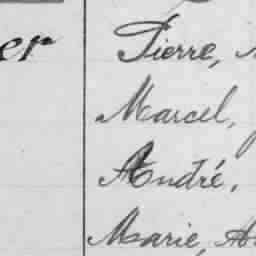 er Pierre,
Marcel,
André,
Marie,